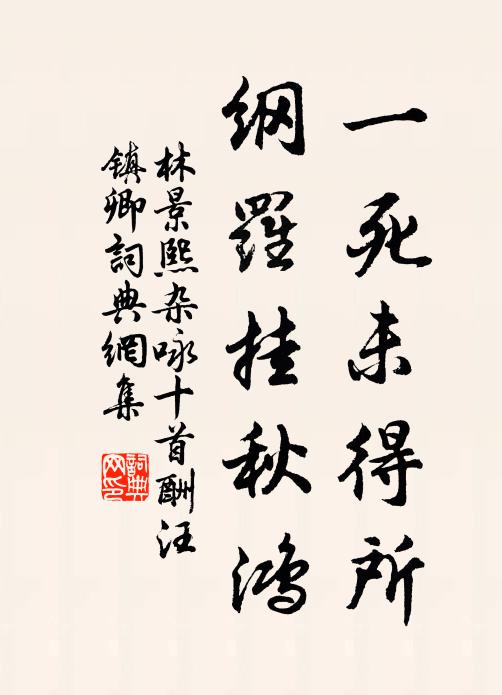 一死未得所
纲羅挂秋鸿
林景熙杂咏十首酬汪
镇卿詞典網集
詞典网印